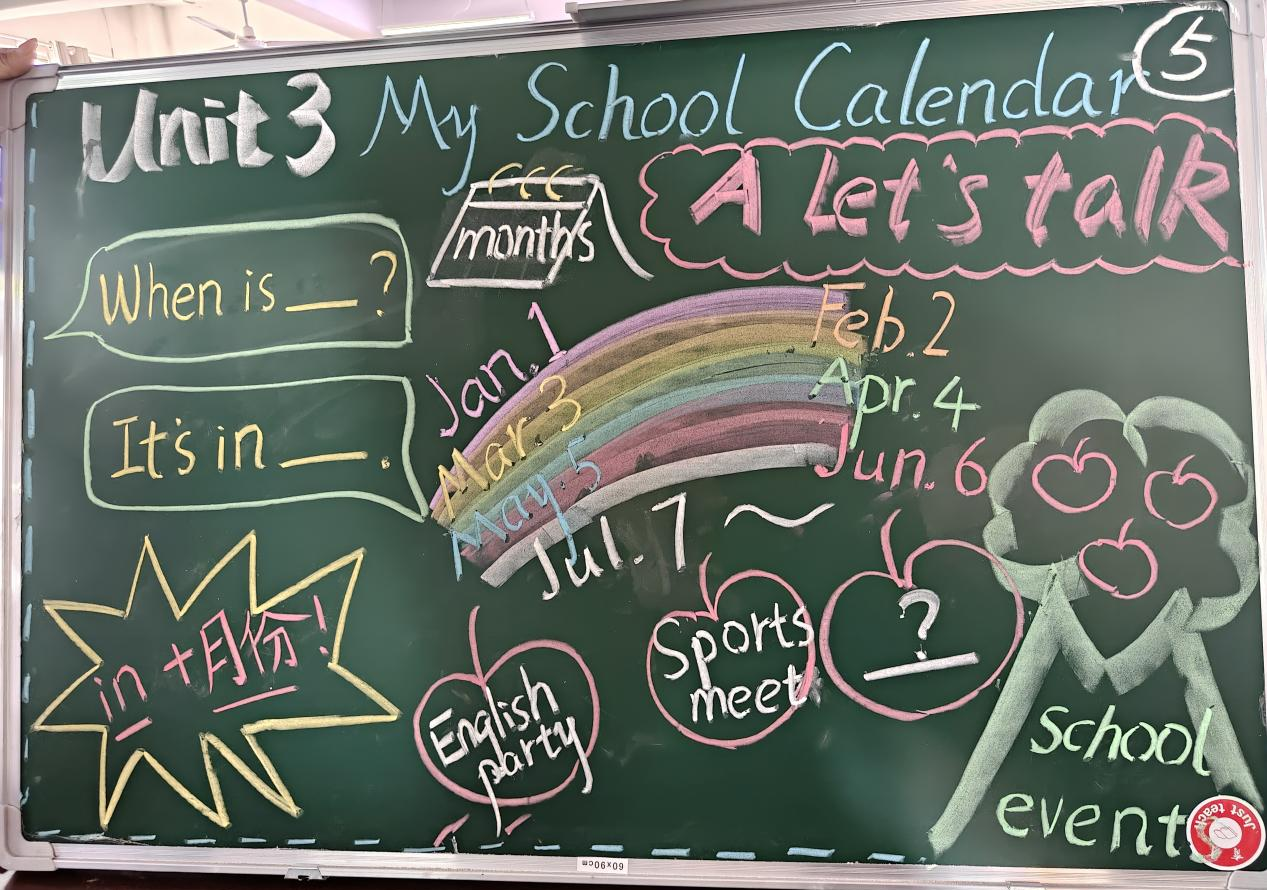 Unit 3 My School Calendar
5
A Let's talk
months
When is __ ?
It's in __ .
Jan. 1
Feb. 2
Mar. 3
Apr. 4
May. 5
Jun. 6
Jul. 7 ~
in + 月份!
English
party
Sports
meet
?
School
events
Just teach
60x90cm